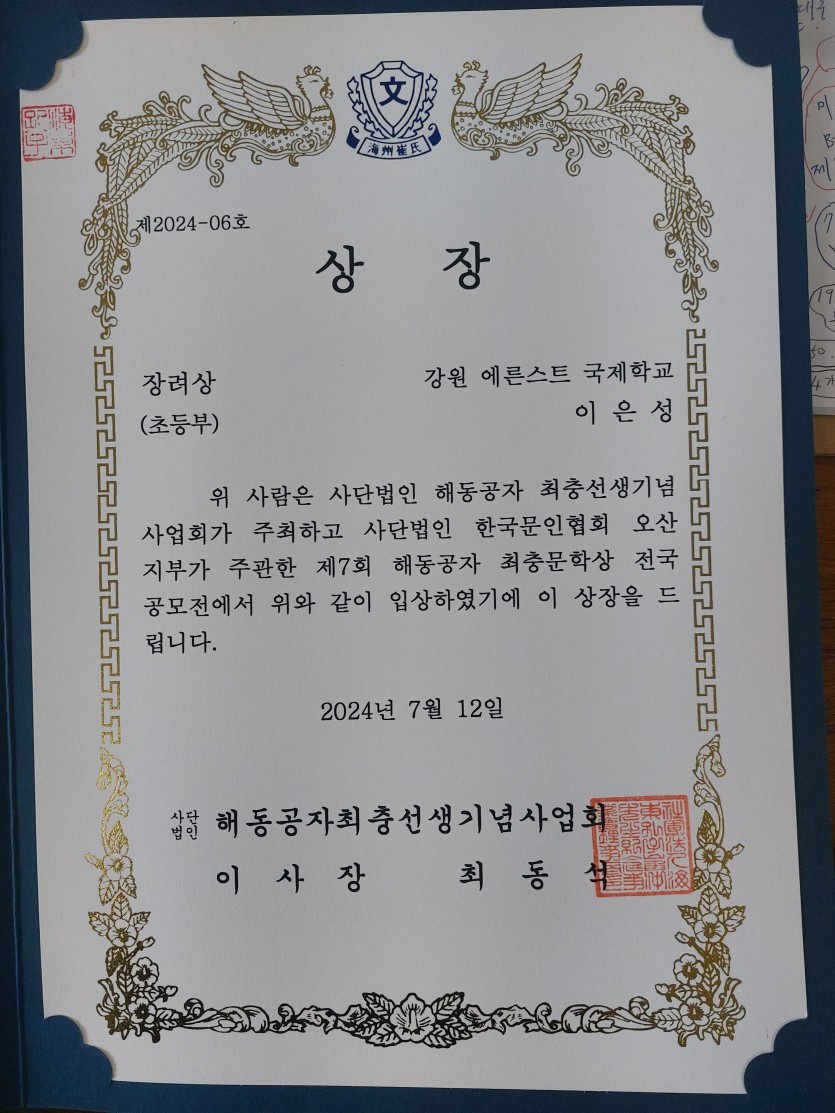 文
海州崔氏
제2024-06호
상 장
장려상
강원 에른스트 국제학교
(초등부)
이 은 성
위 사람은 사단법인 해동공자 최충선생기념
사업회가 주최하고 사단법인 한국문인협회 오산
지부가 주관한 제7회 해동공자 최충문학상 전국
공모전에서 위와 같이 입상하였기에 이 상장을 드
립니다.
2024년 7월 12일
사단
법인 해동공자최충선생기념사업회
이 사 장 최 동 석